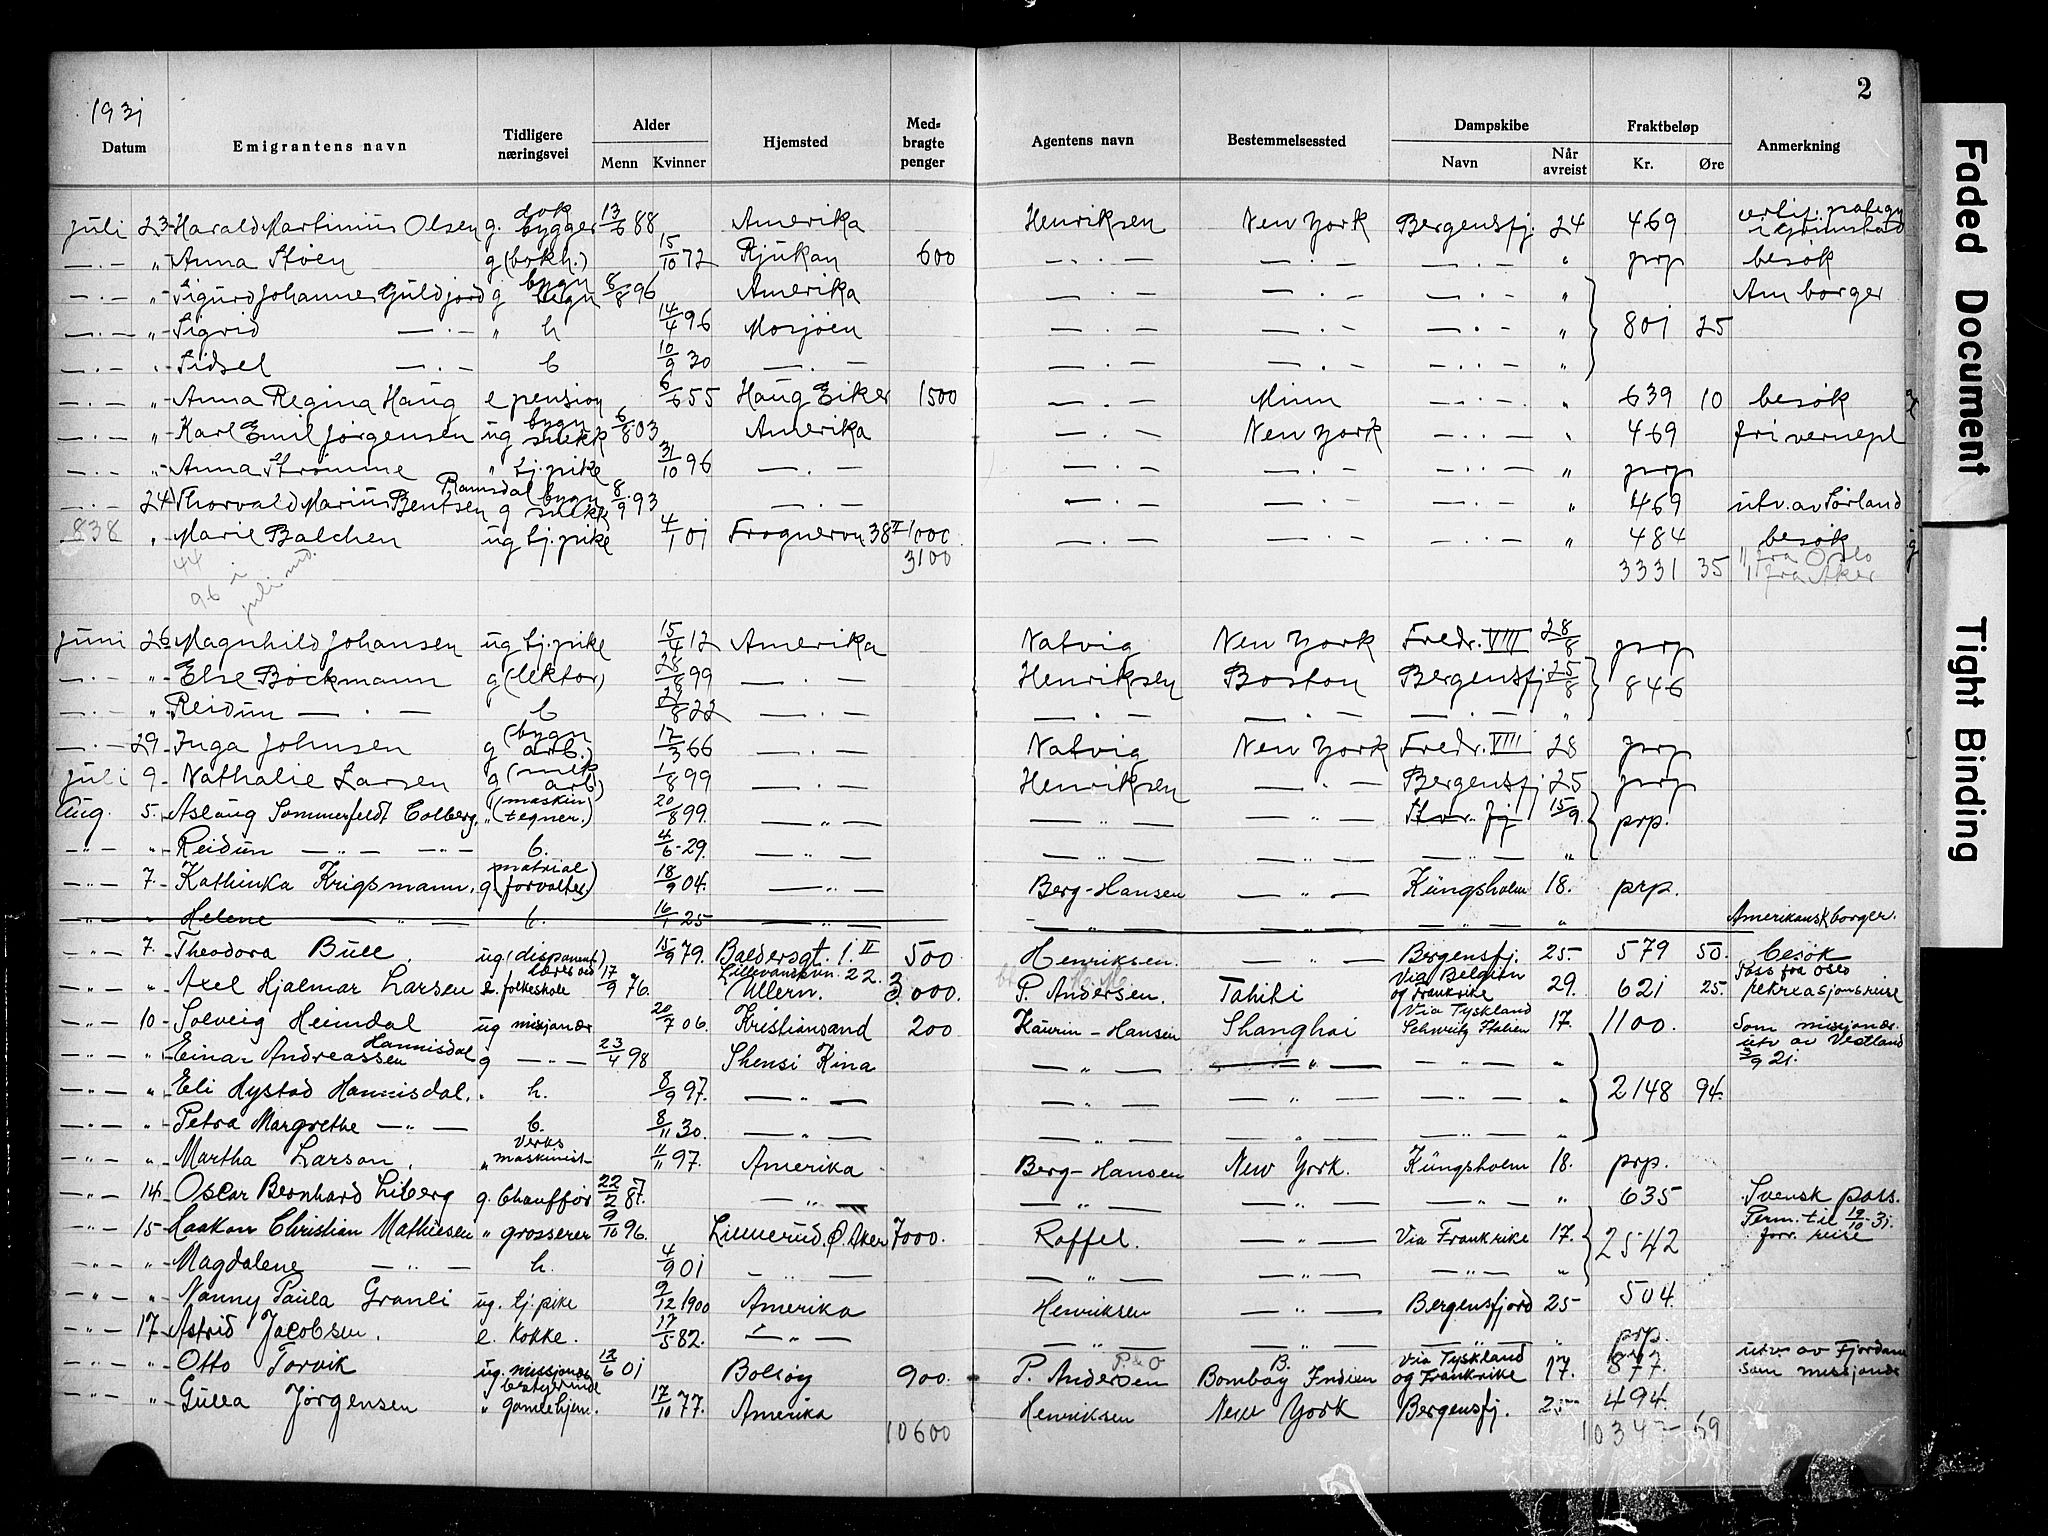 2
1931
Datum Emigrantens navn Tidligere næringsvei Alder Menn Kvinner Hjemsted Med-bragte penger Agentens navn Bestemmelsessted Dampskibe Navn Når avreist Fraktbeløp Kr. Øre Anmerkning
juli 23 Harald Martinius Olsen g. dok bygger 13/6 88 Amerika Henriksen New York Bergensfj. 24 469
— . — " Anna Støen g (bokh.) 15/10 72 Rjukan 600 — . — — . — — . — " prp besøk
— . — " Sigurd Johannes Guldjord g bygn 8/8 96 Amerika — . — — . — — . — " Am borger
— . — " Sigrid — . — " h 14/4 96 Mosjøen — . — — . — — . — " 801 25
— . — " Sidsel — . — b 10/9 30 — . — — . — — . — — . — "
— . — " Anna Regina Haug e pension 6/6 55 Haug Eiker 1500 — . — Minn — . — " 639 10 besøk
— . — " Karl Emil Jørgensen ug bygn snekk 6/8 03 Amerika — . — New York — . — " 469 fri vernepl
— . — " Anna Strømme " tj. pike 31/10 96 — . — — . — — . — — . — " prp
— . — 24 Thorvald Marius Bentsen Ramsdal g bygn snekk 8/9 93 — . — — . — — . — " 469 utv. av Sørland
838 " Marie Balchen ug tj. pike 4/1 01 Frognervn 38 II 1000 — . — — . — — . — " 484 besøk
3100 3331 35 " fra Oslo
44 " fra Aker
96 i juli md.
juni 26 Magnhild Johansen ug tj. pike 15/4 12 Amerika Natvig New York Fredr. VIII 28/8 prp
— . — " Else Bøckmann g (lektor) 28/8 99 — . — Henriksen Boston Bergensfj 25/8 846
— . — " Reidun — . — b 29/8 22 — . — — . — — . — — . — "
— . — 29 Inga Johnsen g (bygn arb.) 17/3 66 — . — Natvig New York Fredr. VIII 28 prp
juli 9 Nathalie Larsen g (mek arb) 1/8 99 — . — Henriksen — . — Bergensfj 25 prp
Aug. 5. Aslaug Sommerfeldt Colberg. " (maskin tegner.) 20/8 99. — " — — " — — " — Stav. fj 15/9 prp.
— " — " Reidun — " — — " — b. 4/6 29. — " — — " — — " — — " — "
— " — 7. Kathinka Krigsmann. g (matrial forvalter) 18/9 04. — " — Berg-Hansen — " — Kungsholm 18. prp.
— " — " Helene — " — b. 16/1 25 — " — — " — — " — — " — " Amerikansk borger.
— " — 7. Theodora Bull. ug (disponent) 15/9 79. Baldersgt. 1. II 500 Henriksen. — " — Bergensfj. 25. 579 50. besøk
— " — " Axel Hjalmar Larsen e. Lærer ved folkeskole 17/9 76. Lillevannsvn. 22. Ullern. 3.000. P. Andersen. Tahiti Via Belgien og Frankrike 29. 621 25. Pass fra Oslo rekreasjonsreise
— " — 10 Solveig Heimdal ug misjonær 20/7 06. Kristiansand 200 Kaurin-Hansen Shanghai Via Tyskland Schweitz Italien 17. 1100. Som misjonær.
— " — " Einar Andreassen Hannisdal g — " — 23/4 98 Shensi Kina — " — — " — — " — " utv av Vestland 3/9 21.
— " — " Eli Hystad Hannisdal. " h. 8/9 97. — " — — " — — " — — " — " 2148 94.
— " — " Petra Margrethe — " — b. 8/11 30. — " — — " — — " — — " — "
— " — " Martha Larson. " Verks maskinist 11/11 97. Amerika Berg-Hansen New York. Kungsholm 18. prp.
— " — 14 Oscar Bernhard Liberg g. Chauffør 22/2 87. — " — — " — — " — — " — " 635 Svensk pass.
— " — 15 Haakon Christian Mathiesen " grosserer 9/10 96. Linnerud. Ø. Aker 7000. Raffel. — " — Via Frankrike 17. 2542 Perm. til 19/10 31. forr. reise
— " — " Magdalene — " — h. 4/9 01 — " — — " — — " — — " — "
— " — " Nanny Paula Granli ug. tj. pike 9/12 1900 Amerika Henriksen — " — Bergensfjord 25 504.
— " — 17 Astrid Jacobsen. e. Kokke. 17/5 82. — " — — " — — " — — " — " prp.
— " — " Otto Torvik ug. misjonær 12/6 01 Bolsøy 900. P. Andersen P & O Bombay B. Indien Via Tyskland og Frankrike 17. 877. utv. av Fjordane som misjonær
— " — " Gulla Jørgensen " bestyrerinde gamlehjem. 17/10 77. Amerika Henriksen New York Bergensfj. 25 494.
10600 69
Faded Document
Tight Binding